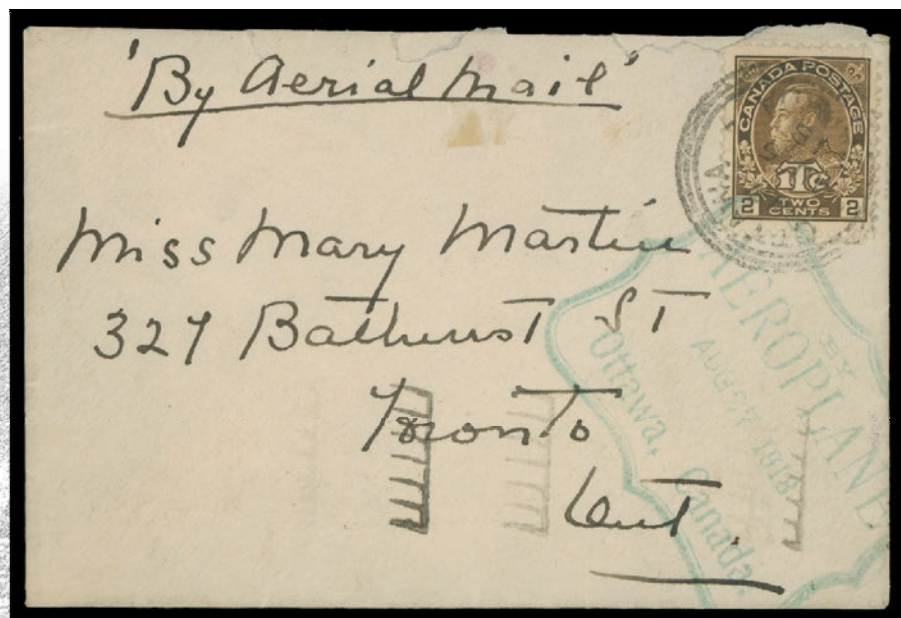 'By Aerial Mail'
CANADA POSTAGE
1Tc
2 TWO CENTS 2
Miss Mary Martin
327 Bathurst St
Toronto
Ont.
BY
AEROPLANE
AUG. 27 1918
Ottawa, Canada.